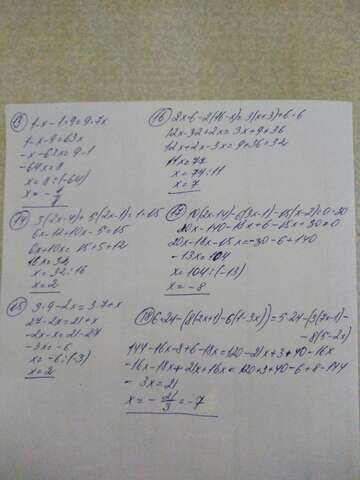 13) 1-x-1·9=9·7x
1-x-9=63x
-x-63x=9-1
-64x=8
x=8:(-64)
x=-1/8
14) 3(2x-4)+5(2x-1)=1·15
6x-12+10x-5=15
6x+10x=15+5+12
16x=32
x=32:16
x=2
15) 3·9-2x=3·7+x
27-2x=21+x
-2x-x=21-27
-3x=-6
x=-6:(-3)
x=2
16) 2x·6-2(16-x)=3(x+3)+6·6
12x-32+2x=3x+9+36
12x+2x-3x=9+36+32
11x=77
x=77:11
x=7
17) 10(2x-14)-6(3x-1)-15(x-2)=0·30
20x-140-18x+6-15x+30=0
20x-18x-15x=-30-6+140
-13x=104
x=104:(-13)
x=-8
18) 6·24-(8(2x+1)-6(1-3x))=5·24-(3(7x-1)-
-8(5-2x)
144-16x-8+6-18x=120-21x+3+40-16x
-16x-18x+21x+16x=120+3+40-6+8-144
-3x=21
x=-21/3=-7